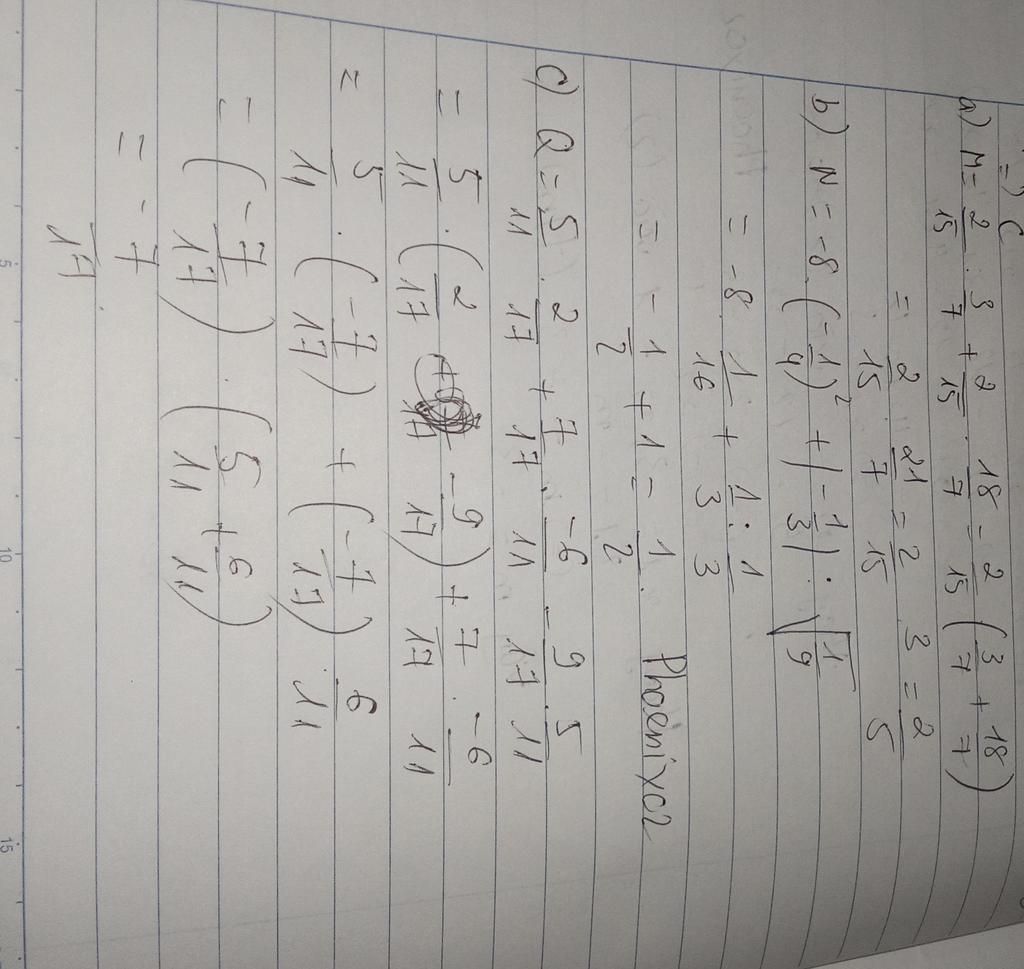 =) C
a) M = 2/15 . 3/7 + 2/15 . 18/7 = 2/15 (3/7 + 18/7)
= 2/15 . 21/7 = 2/15 . 3 = 2/5
b) N = -8 . (-1/4)² + |-1/3| : √1/9
= -8 . 1/16 + 1/3 : 1/3
= -1/2 + 1 = 1/2.
Phoenixc2
c) Q = 5/11 . 2/17 + 7/17 . -6/11 - 9/17 . 5/11
= 5/11 . (2/17 - 9/17) + 7/17 . -6/11
= 5/11 . (-7/17) + (-7/17) . 6/11
= (-7/17) . (5/11 + 6/11)
= -7/17.